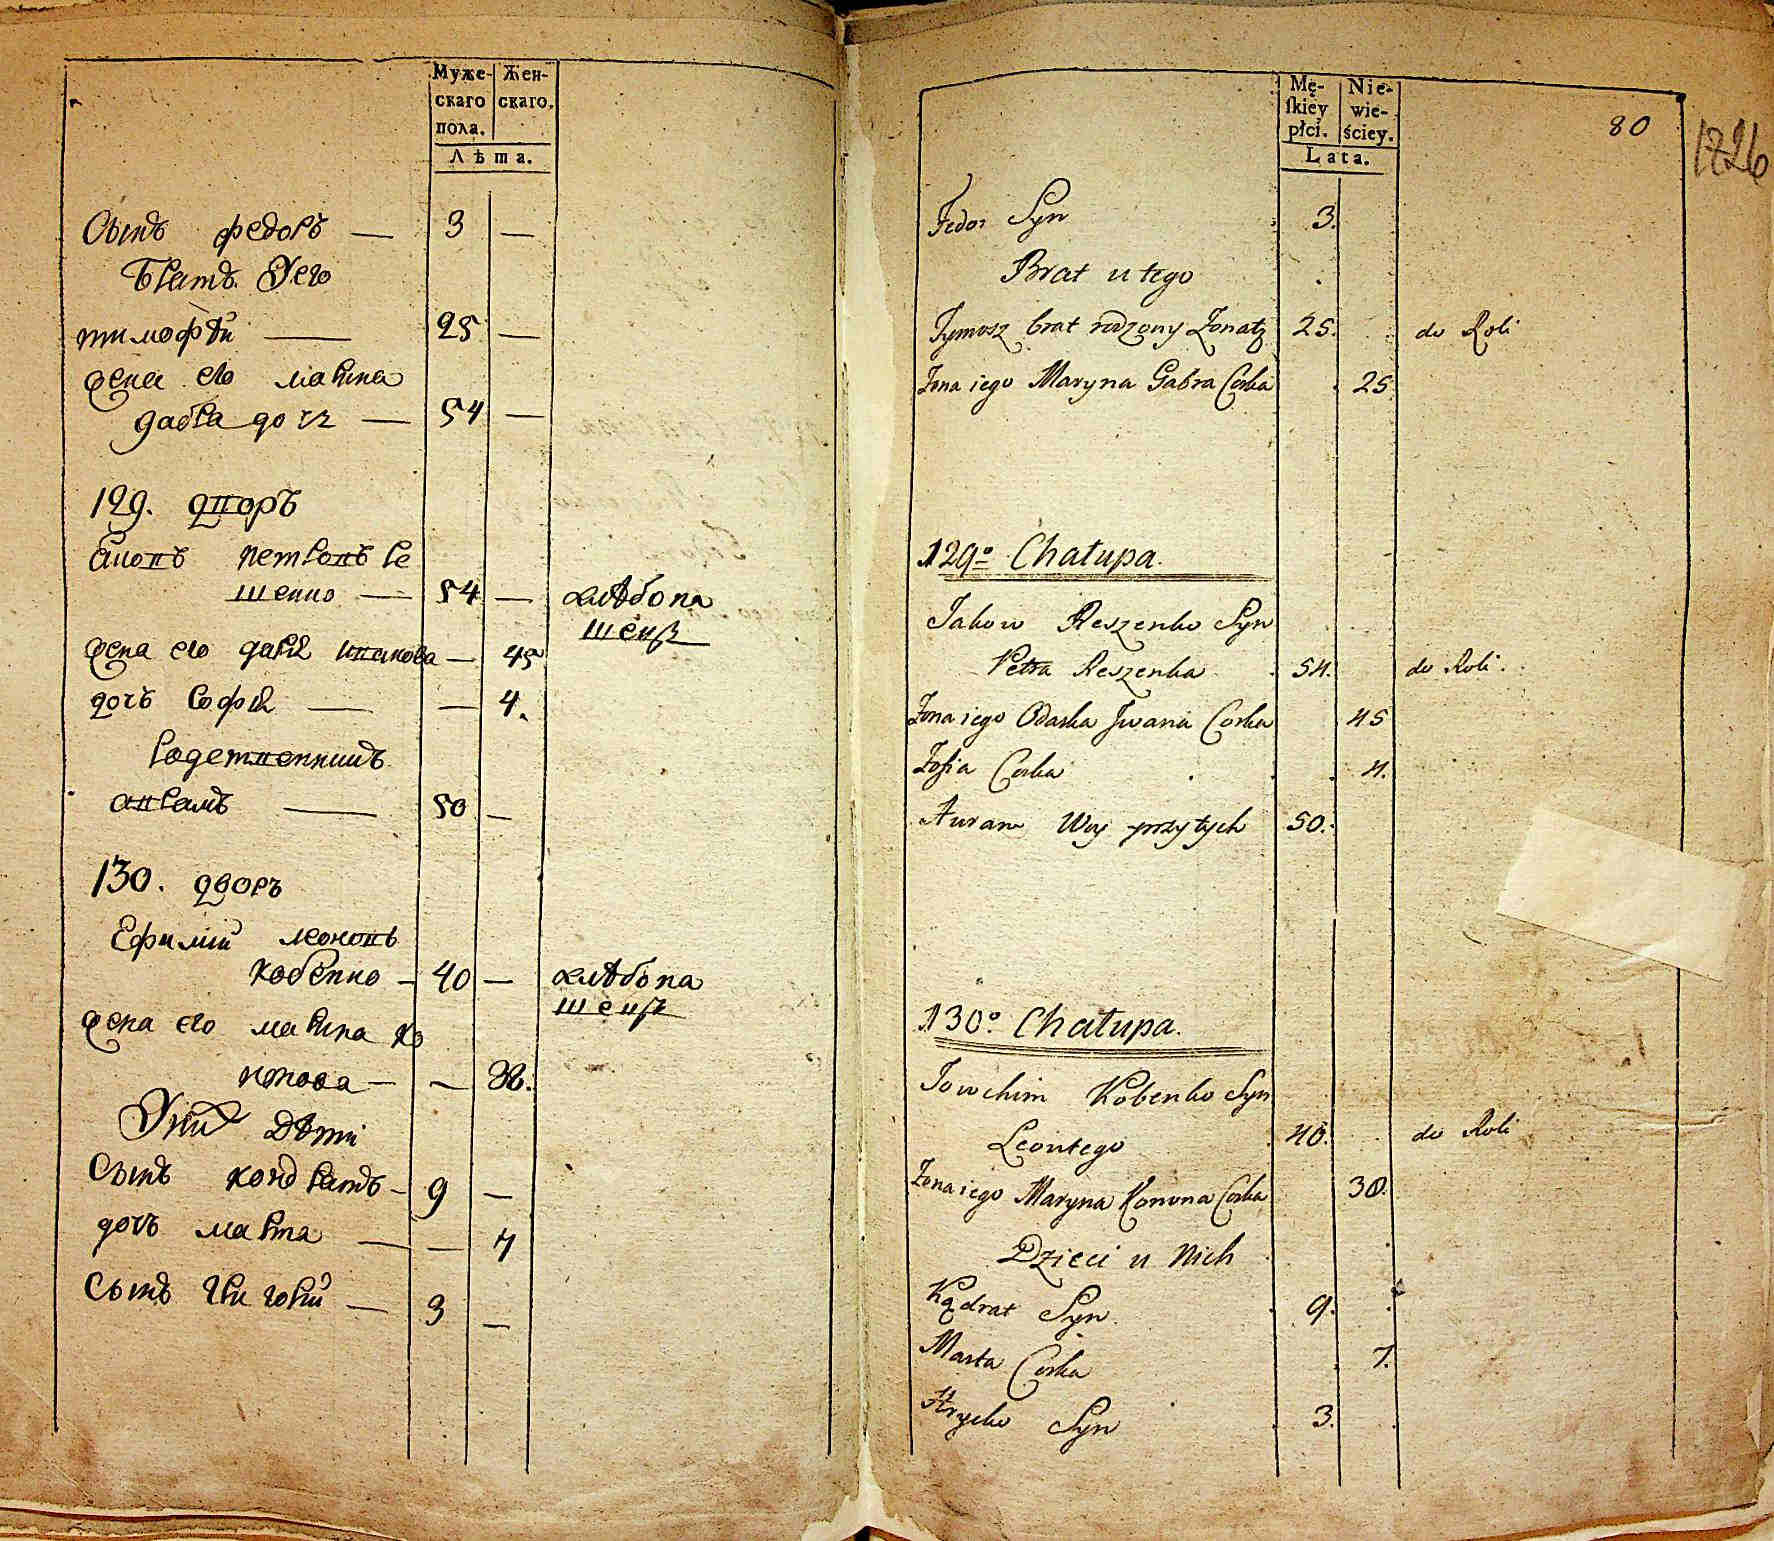 Муже- Жен-
скаго скаго.
пола.
Лѣта.
Сынъ федоръ — 3 —
Братъ Уего
тимофѣй — 25 —
жена его марина
габра дочь — 54 —
129. дворъ
петровъ ре
шенко — 54 — хлѣбопа
шецъ
жена его дарія иванова — 45
дочь софія — — 4.
родственникъ
аврамъ — 50 —
130. дворъ
Ефимій леоновъ
кобенко — 40 — хлѣбопа
шецъ
жена его марина ко
нонова — — 38.
Уних дѣти
Сынъ кондратъ — 9 —
дочь марта — — 7
Сынъ григорій — 3 —
Mę- Nie-
skiey wie-
płci. ściey.
Lata.
80
1726
Fedor Syn 3.
Brat u tego
Tymosz brat rodzony Żonaty 25. do Roli
Żona iego Maryna Gabra Corka 25.
129o Chałupa.
Jakow Reszenko Syn
Petra Reszenka 54. do Roli.
Żona iego Odarka Iwana Corka 45
Zofia Corka 4.
Auram Wuy przy tych 50.
130o. Chałupa.
Jowchim Kobenko Syn
Leontego 40. do Roli
Żona iego Maryna Konona Corka 38.
Dzieci u Nich
Kądrat Syn 9.
Marta Corka 7.
Hrycko Syn 3.